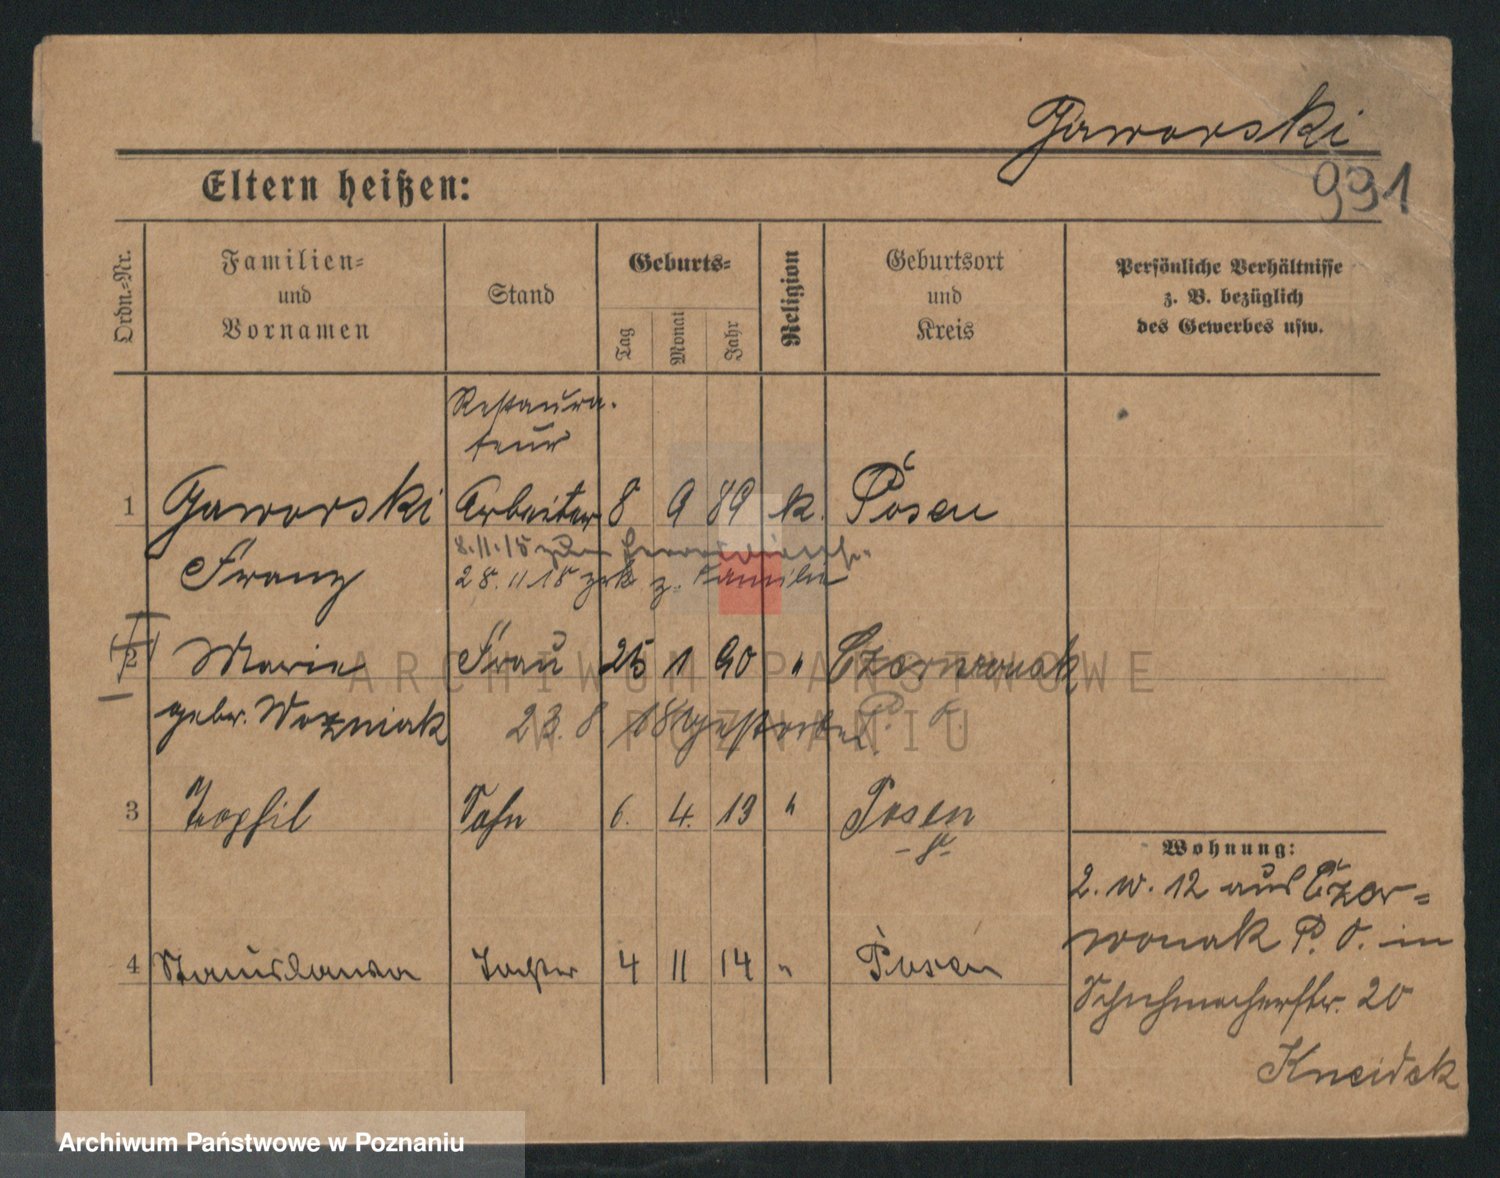 Jaworski
991
Eltern heißen:
Ordn.-Nr.
Familien-
und
Vornamen
Stand
Geburts-
Tag
Monat
Jahr
Religion
Geburtsort
und
Kreis
Persönliche Verhältnisse
z. B. bezüglich
des Gewerbes usw.
Restaura-
teur
1 Jaworski Arbeiter 8 9 89 k. Posen
Franz
8.11.15 zum
28.11 15 zrk z. Familie
2 Marie Frau 25 1 90 " Czerwonak
gebr. Wozniak 23.8 18 gestorben P. O.
3 Teophil Sohn 6. 4. 13 " Posen
Wohnung:
2. W. 12 aus Czer-
wonak P. O. in
4 Stanislawa Tochter 4 11 14 " Posen
Schuhmacherstr. 20
Kneidek
ARCHIWUM PAŃSTWOWE
W POZNANIU
Archiwum Państwowe w Poznaniu